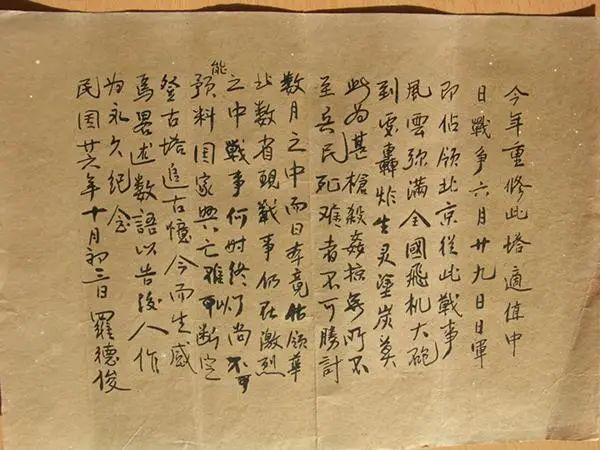 今年重修此塔適值中
日戰爭六月廿九日日軍
即佔領北京從此戰事
風雲弥滿全國飛机大砲
到處轟炸生灵塗炭莫
此為甚槍殺姦掠無所不
至兵民死难者不可勝計
数月之中而日本竟佔領華
北数省現戰事仍在激烈
之中戰事何时終了尚不可
能
預料国家興亡难以断定
登古塔追古憶今而生感
焉畧述数語以告後人作
为永久纪念
民国廿六年十月初三日羅德俊